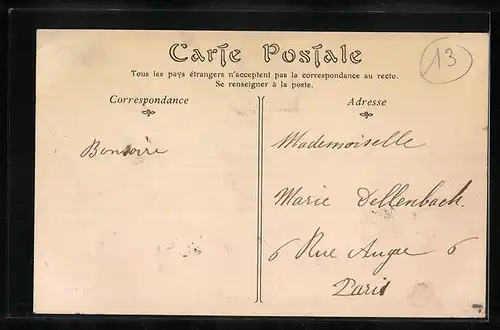 Carte Postale
13
Tous les pays étrangers n'acceptent pas la correspondance au recto.
Se renseigner à la poste.
Correspondance
Adresse
Bonsoire
Mademoiselle
Marie Dellenbach.
6 Rue Augee 6
Paris